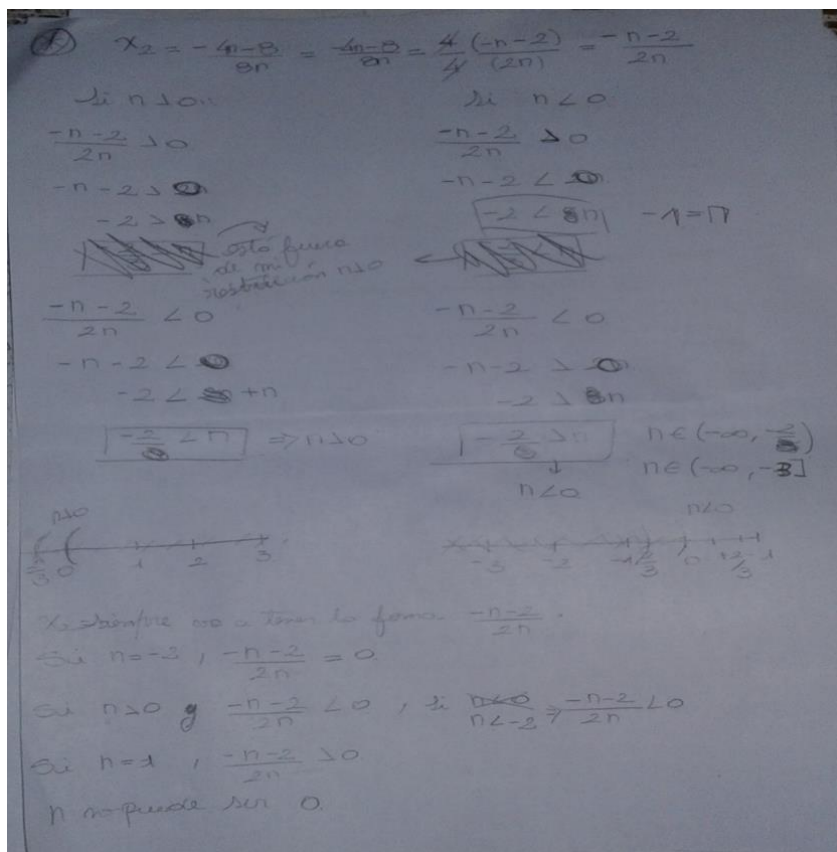 x₂ = -4n-8/8n = -4n-8/8n = 4/4 (-n-2)/(2n) = -n-2/2n
Si n>0
-n-2/2n > 0
-n-2 > 0
-2 > n
está fuera
de mi
restricción n>0
-n-2/2n < 0
-n-2 < 0
-2 < +n
-2 < n ⇒ n>0
Si n<0
-n-2/2n > 0
-n-2 < 0
-2 < n -1=n
-n-2/2n < 0
-n-2 > 0
-2 > n
-2 > n n∈(-∞, -2)
n<0 n∈(-∞, -3]
n>0
0 1 2 3
n<0
-3 -2 -1 -2/3 0 +2/3 1
x₂ siempre va a tener la forma -n-2/2n.
Si n=-2, -n-2/2n = 0
Si n>0 y -n-2/2n < 0, si n<0
n<-2 ⇒ -n-2/2n < 0
Si n=1, -n-2/2n > 0
n no puede ser 0